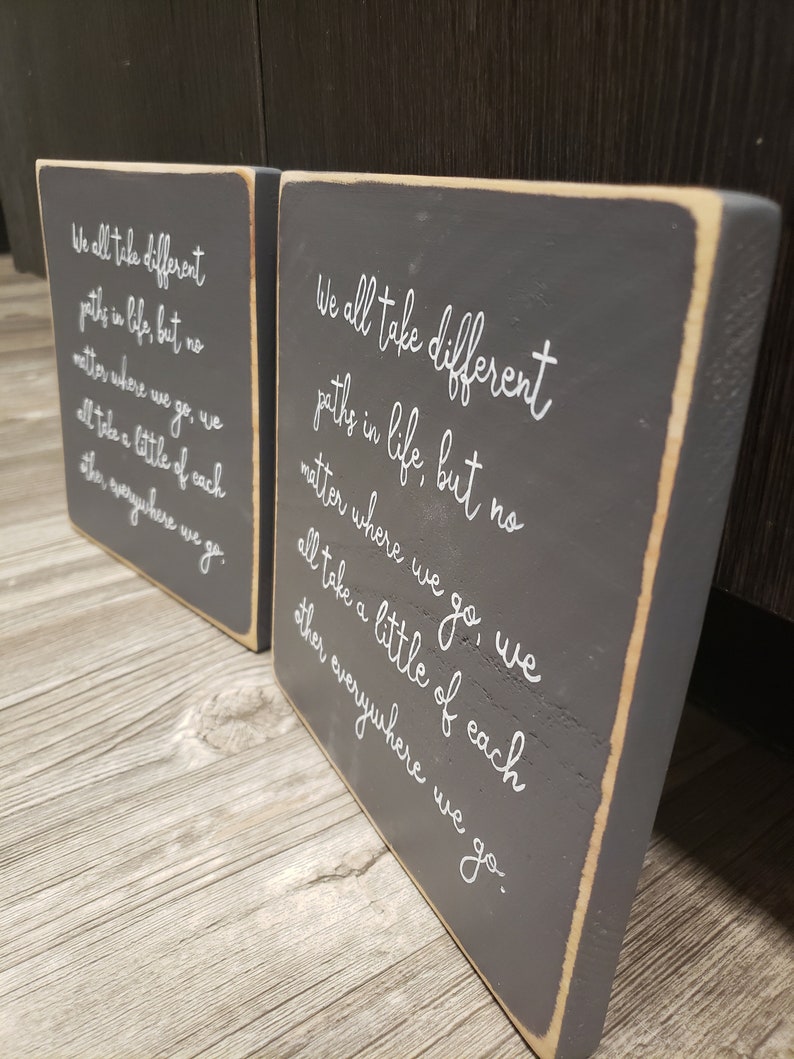 We all take different
paths in life, but no
matter where we go, we
all take a little of each
other, everywhere we go.
We all take different
paths in life, but no
matter where we go, we
all take a little of each
other everywhere we go.